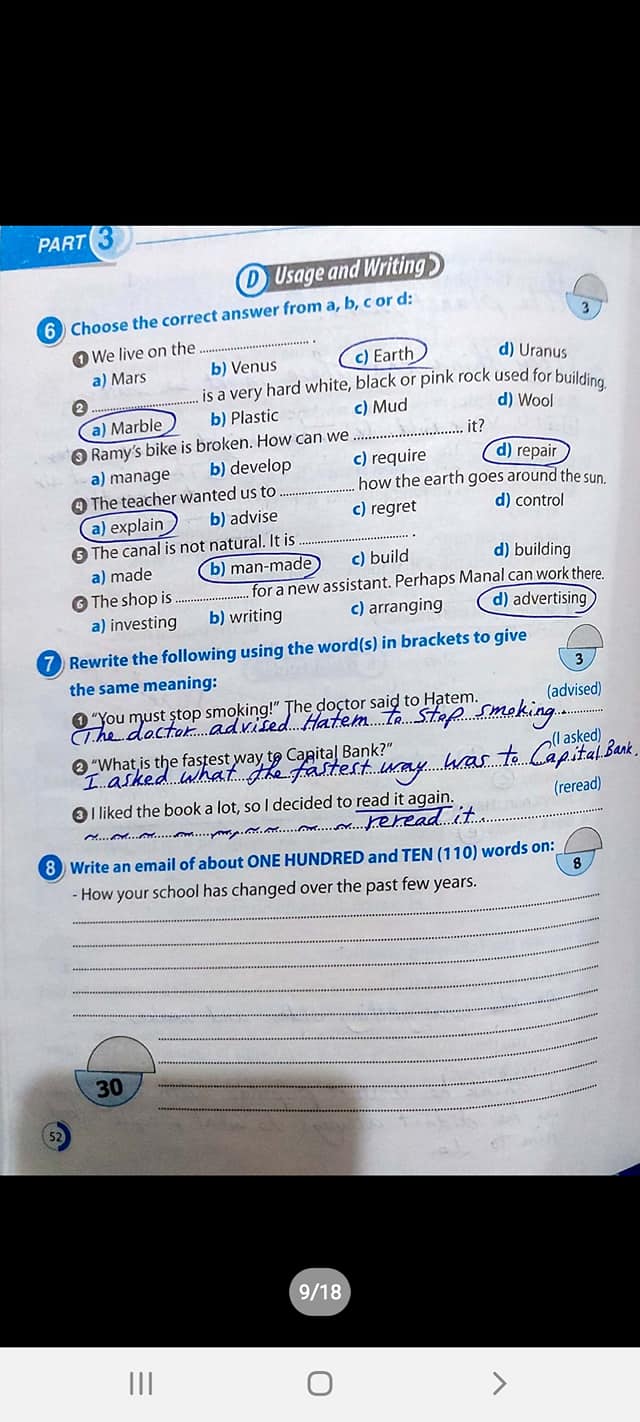 PART 3
D Usage and Writing
6 Choose the correct answer from a, b, c or d:
3
1 We live on the .................... .
a) Mars b) Venus c) Earth d) Uranus
2 .................... is a very hard white, black or pink rock used for building.
a) Marble b) Plastic c) Mud d) Wool
3 Ramy's bike is broken. How can we .................... it?
a) manage b) develop c) require d) repair
4 The teacher wanted us to .................... how the earth goes around the sun.
a) explain b) advise c) regret d) control
5 The canal is not natural. It is .................... .
a) made b) man-made c) build d) building
6 The shop is .................... for a new assistant. Perhaps Manal can work there.
a) investing b) writing c) arranging d) advertising
7 Rewrite the following using the word(s) in brackets to give
the same meaning:
3
1 "You must stop smoking!" The doctor said to Hatem. (advised)
The doctor advised Hatem to stop smoking.
2 "What is the fastest way to Capital Bank?" (I asked)
I asked what the fastest way was to Capital Bank.
3 I liked the book a lot, so I decided to read it again. (reread)
reread it.
8 Write an email of about ONE HUNDRED and TEN (110) words on:
8
- How your school has changed over the past few years.
30
52
9/18